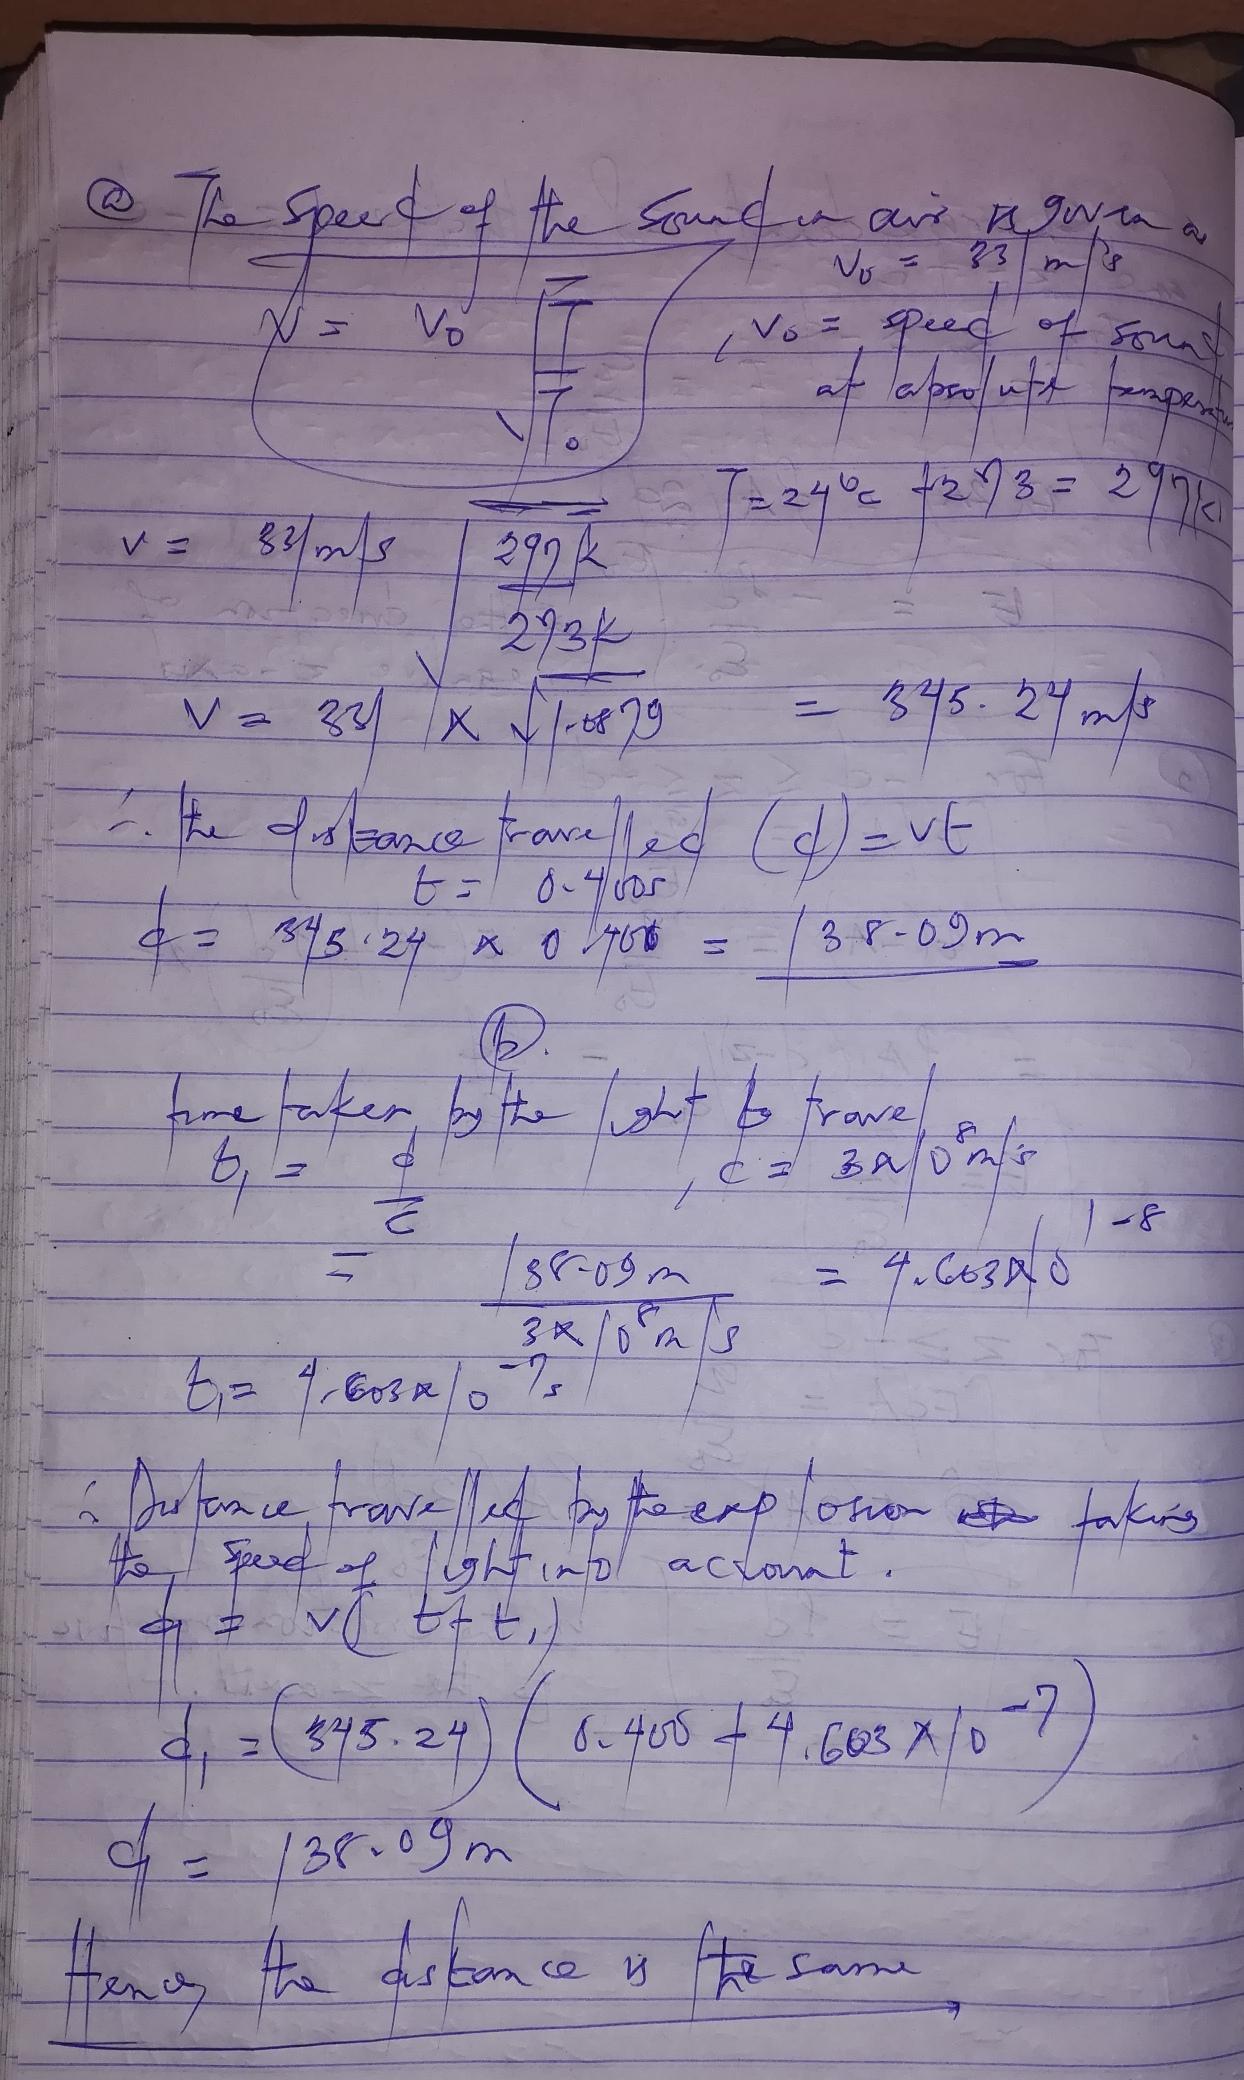 (a) The speed of the sound in air is given as
V₀ = 331 m/s
V = V₀ √(T/T₀) , V₀ = speed of sound
at absolute temperature
T = 24°C + 273 = 297K
V = 331 m/s √(297K/273K)
V = 331 × √1.0879 = 345.24 m/s
∴ the distance travelled (d) = vt
t = 0.400s
d = 345.24 × 0.400 = 138.09m
(b).
time taken by the light to travel
t₁ = d/c , c = 3×10⁸ m/s
= 138.09m / 3×10⁸ m/s = 4.603×10¹⁻⁸
t₁ = 4.603×10⁻⁷s
∴ Distance travelled by the explosion taking
the speed of light into account.
d₁ = v( t + t₁)
d₁ = (345.24) (0.400 + 4.603×10⁻⁷)
d₁ = 138.09m
Hence, the distance is the same